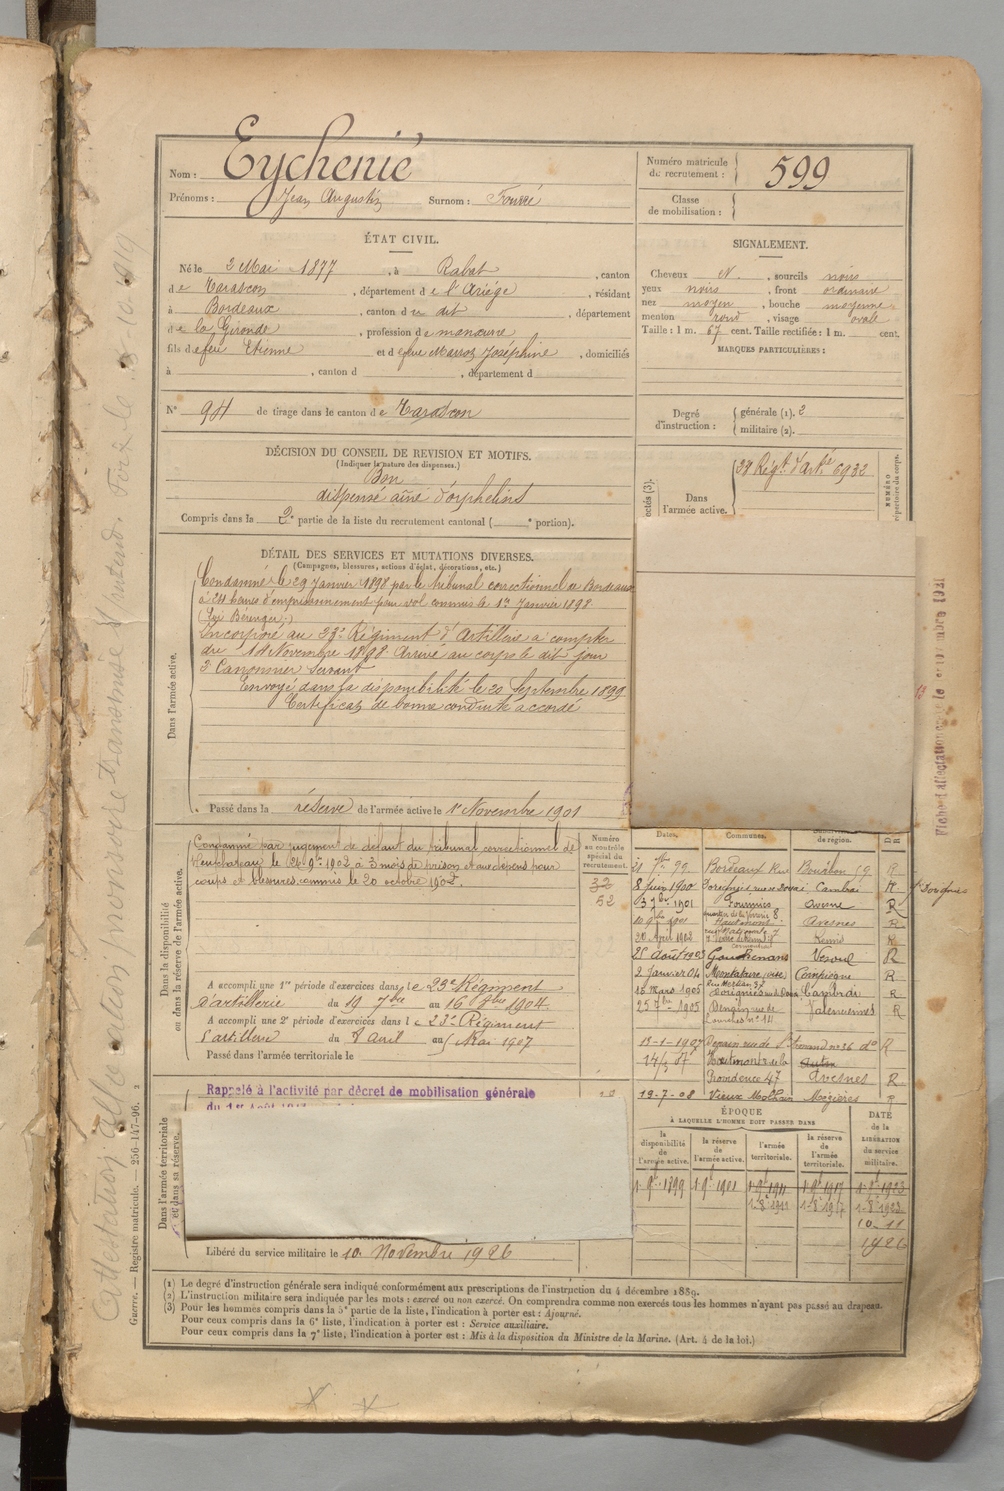 Nom : Eychenié
Prénoms : Jean Augustin Surnom : Fourré
Numéro matricule du recrutement : 599
Classe de mobilisation :
ÉTAT CIVIL.
Né le 2 Mai 1877, à Rabat, canton
de Tarascon, département de l'Ariège, résidant
à Bordeaux, canton du dit, département
de la Gironde, profession de manœuvre
fils de feu Etienne et de feue Marrot Joséphine, domiciliés
à , canton d , département d
SIGNALEMENT.
Cheveux N. , sourcils noirs
yeux noirs , front ordinaire
nez moyen , bouche moyenne
menton rond , visage ovale
Taille : 1 m. 67 cent. Taille rectifiée : 1 m. cent.
MARQUES PARTICULIÈRES :
N° 94 de tirage dans le canton de Tarascon
Degré d'instruction : générale (1). 2
militaire (2).
DÉCISION DU CONSEIL DE REVISION ET MOTIFS.
(Indiquer la nature des dispenses.)
Bon
dispensé aîné d'orphelins
Compris dans la 2e partie de la liste du recrutement cantonal ( e portion).
Dans l'armée active.
NUMÉRO
répertoire du corps.
DÉTAIL DES SERVICES ET MUTATIONS DIVERSES.
(Campagnes, blessures, actions d'éclat, décorations, etc.)
Dans l'armée active.
Condamné le 29 Janvier 1898 par le tribunal correctionnel de Bordeaux
à 24 heures d'emprisonnement pour vol commis le 1er Janvier 1898
(Loi Bérenger)
Incorporé au 23e Régiment d'Artillerie à compter
du 14 Novembre 1898 Arrivé au corps le dit jour
2 Canonnier Servant
Envoyé dans la disponibilité le 20 Septembre 1899
Certificat de bonne conduite accordé
Passé dans la réserve de l'armée active le 1er Novembre 1901
Dans la disponibilité ou dans la réserve de l'armée active.
Condamné par jugement de défaut du tribunal correctionnel de
le 26 9bre 1902 à 3 mois de prison et aux dépens pour
coups et blessures commis le 20 octobre 1902.
A accompli une 1re période d'exercices dans le 23e Régiment
d'artillerie du 19 7bre au 16 8bre 1904.
A accompli une 2e période d'exercices dans le 23e Régiment
d'artillerie du 8 Avril au 5 Mai 1907
Passé dans l'armée territoriale le
Numéro au contrôle spécial du recrutement.
32
52
Dates. Communes. de région.
Bordeaux Rue
8 Juin 1900 Cambrai R
1901 Fourmies Avesne R
Hautmont Avesnes R
30 Avril 1902 Reims R
25 Août 1903 Vesoul R
2 Janvier 04 Montataire Compiègne R
15 Mars 1905 Cambrai R
25 7bre 1905 Denain rue de Valenciennes R
13-1-1907 Denain rue de n° 36 do R
Hautmont r de la
Providence 47 Avesnes R
19-7-08 Vieux Molhain Mézières R
Dans l'armée territoriale et dans sa réserve.
Rappelé à l'activité par décret de mobilisation générale
Libéré du service militaire le 10 Novembre 1926
ÉPOQUE
À LAQUELLE L'HOMME DOIT PASSER DANS
la disponibilité de l'armée active. la réserve de l'armée active. l'armée territoriale. la réserve de l'armée territoriale.
DATE de la LIBÉRATION du service militaire.
1-9bre 1899 1-9bre 1901 1-9bre 1911 1-9bre 1917 1-9bre 1923
1-8bre 1911 1-8bre 1917 1-8bre 1923
10-11
1926
(1) Le degré d'instruction générale sera indiqué conformément aux prescriptions de l'instruction du 4 décembre 1889.
(2) L'instruction militaire sera indiquée par les mots : exercé ou non exercé. On comprendra comme non exercés tous les hommes n'ayant pas passé au drapeau.
(3) Pour les hommes compris dans la 5e partie de la liste, l'indication à porter est : Ajourné.
Pour ceux compris dans la 6e liste, l'indication à porter est : Service auxiliaire.
Pour ceux compris dans la 7e liste, l'indication à porter est : Mis à la disposition du Ministre de la Marine. (Art. 4 de la loi.)
Guerre. — Registre matricule. — 256-147-96.